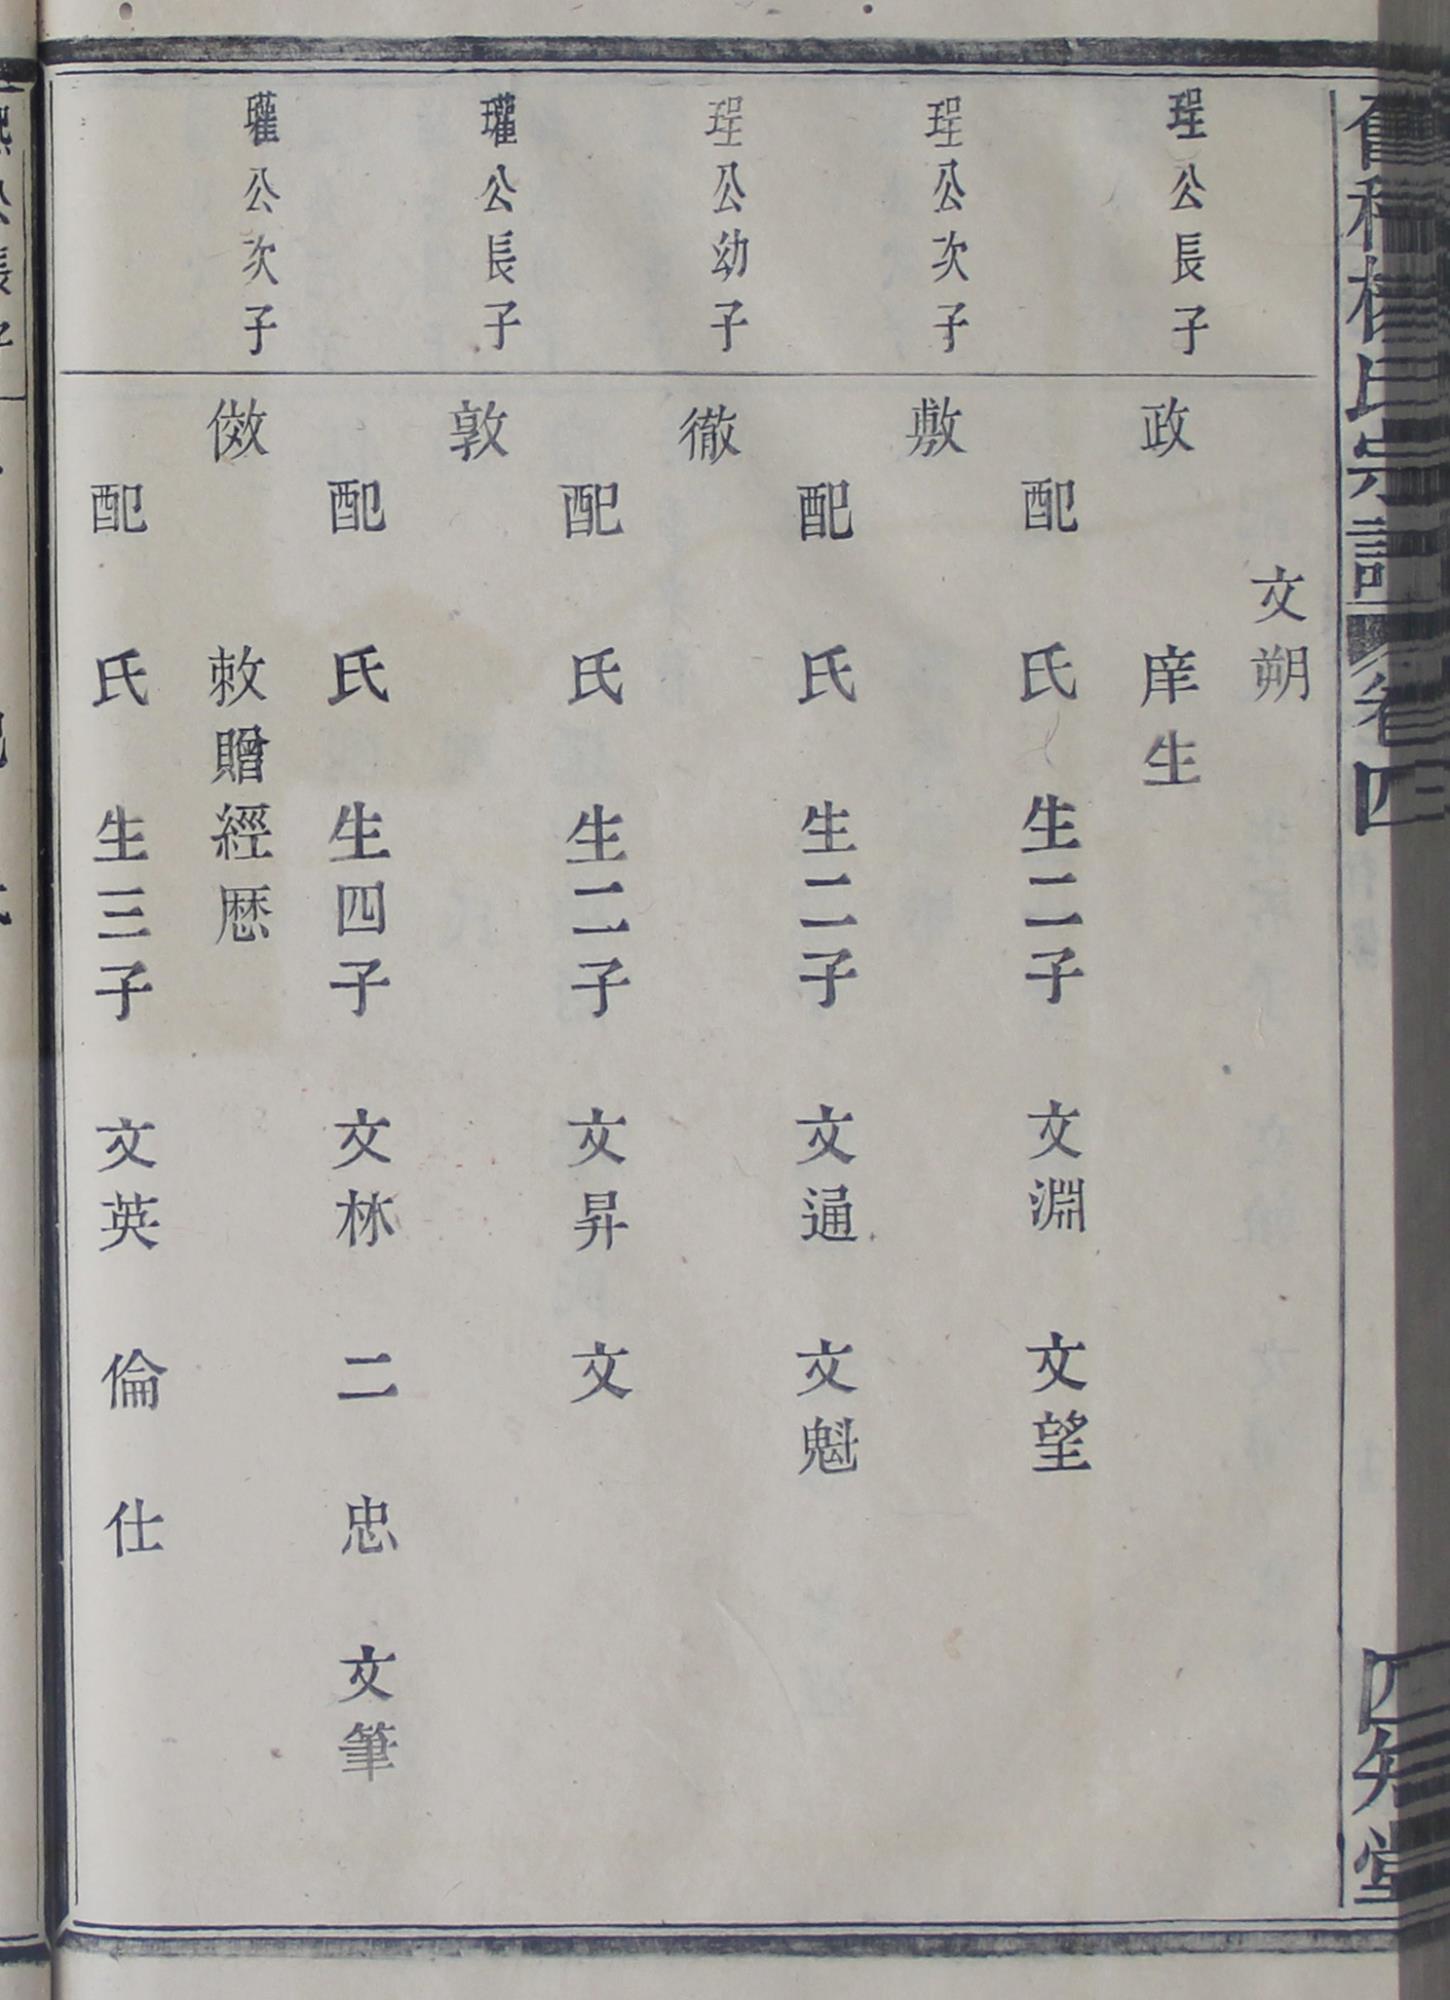 文朔
珵公長子
政
庠生
配 氏 生二子 文淵 文望
珵公次子
敷
配 氏 生二子 文通 文魁
珵公幼子
徹
配 氏 生二子 文昇 文
瓘公長子
敦
配 氏 生四子 文林 二 忠 文筆
瓘公次子
倣
敕贈經歷
配 氏 生三子 文英 倫 仕
氏宗譜
卷四
四知堂